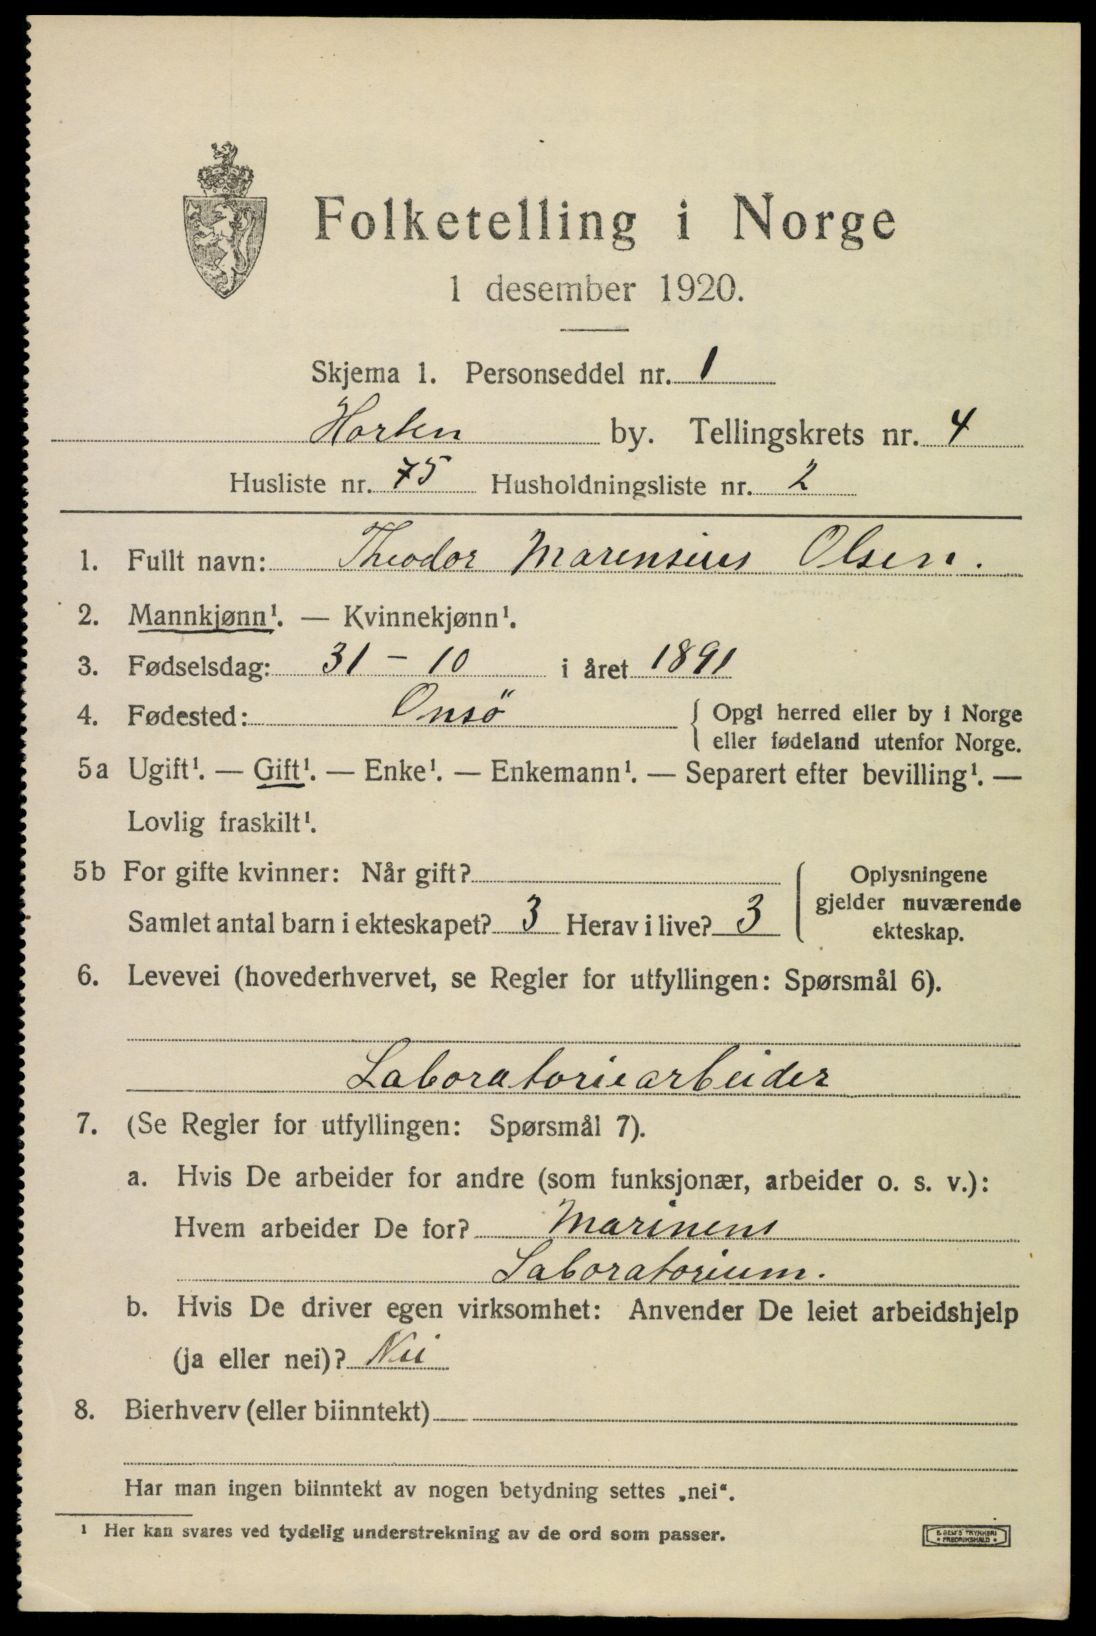 Folketelling i Norge
1 desember 1920.
Skjema 1. Personseddel nr. 1
Horten by. Tellingskrets nr. 4
Husliste nr. 75 Husholdningsliste nr. 2
1. Fullt navn: Theodor Marensius Olsen.
2. Mannkjønn¹. — Kvinnekjønn¹.
3. Fødselsdag: 31 – 10 i året 1891
4. Fødested: Onsö { Opgi herred eller by i Norge
eller fødeland utenfor Norge.
5a Ugift¹. — Gift¹. — Enke¹. — Enkemann¹. — Separert efter bevilling¹. —
Lovlig fraskilt¹.
5b For gifte kvinner: Når gift?
Samlet antal barn i ekteskapet? 3 Herav i live? 3
Oplysningene
gjelder nuværende
ekteskap.
6. Levevei (hovederhvervet, se Regler for utfyllingen: Spørsmål 6).
Laboratoriearbeider
7. (Se Regler for utfyllingen: Spørsmål 7).
a. Hvis De arbeider for andre (som funksjonær, arbeider o. s. v.):
Hvem arbeider De for? Marinens
Laboratorium.
b. Hvis De driver egen virksomhet: Anvender De leiet arbeidshjelp
(ja eller nei)? Nei
8. Bierhverv (eller biinntekt)
Har man ingen biinntekt av nogen betydning settes „nei“.
¹ Her kan svares ved tydelig understrekning av de ord som passer.
E. SEM'S TRYKKERI
FREDRIKSHALD